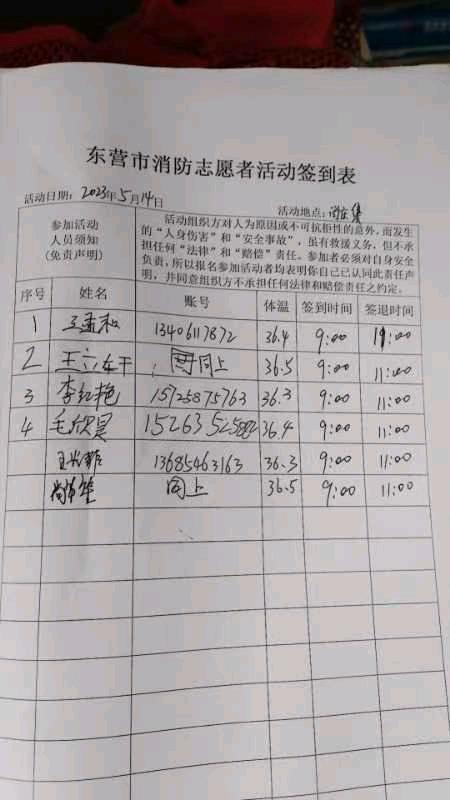 东营市消防志愿者活动签到表
活动日期：2023年5月14日 活动地点：
参加活动人员须知（免责声明）
活动组织方对人为原因或不可抗拒性的意外，而发生
的“人身伤害”和“安全事故”，虽有救援义务，但不承
担任何“法律”和“赔偿”责任。参加者必须对自身安全
负责，所以报名参加活动者均表明你自己已认同此责任声
明，并同意组织方不承担任何法律和赔偿责任之约定。
序号 姓名 账号 体温 签到时间 签退时间
1 王孟和 13406117872 36.4 9:00 11:00
2 王 同上 36.5 9:00 11:00
3 李红艳 15725875763 36.3 9:00 11:00
4 毛欣昊 15263 36.4 9:00 11:00
13685463163 36.3 9:00 11:00
同上 36.5 9:00 11:00